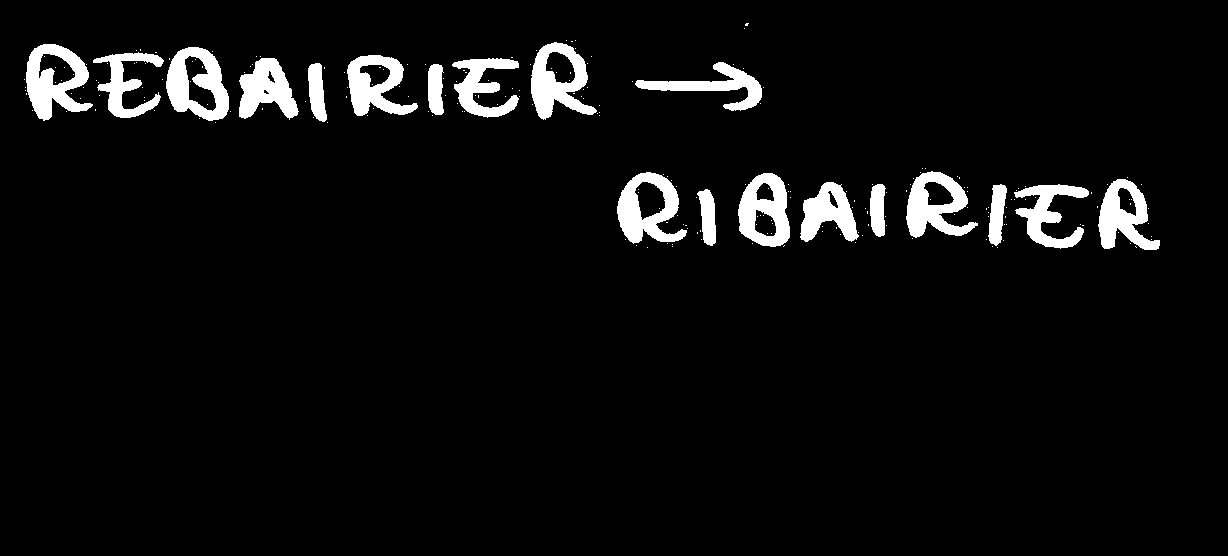 REBAIRIER →
RIBAIRIER